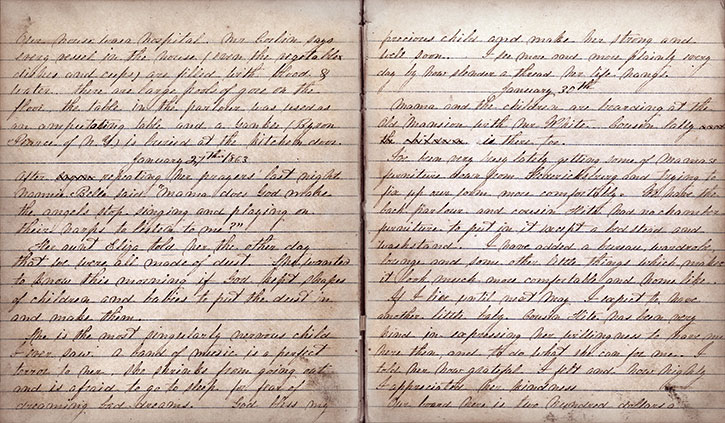 Our house was a hospital. Mr says
every vessel in the house (even the vegetable
dishes and cups) are filled with blood &
water. there are large pools of gore on the
floor. the table in the parlour was used as
an amputating table and a
of N.Y.) is buried at the kitchen door.
January 27th 1863
after repeating her prayers last night
Nannie Belle said "Mama does God make
the angels stop singing and playing on
their harps to listen to me?"
Her aunt Eliza told her the other day
that we were all made of dust. She wanted
to know this morning if God kept shapes
of children and babies to put the dust in
and make them.
She is the most singularly nervous child
I ever saw. a band of music is a perfect
terror to her she shrinks from going out
and is afraid to go to sleep for fear of
dreaming bad dreams. God bless my
precious child and make her strong and
well soon. I see more and more plainly every
day by how slender a thread her life hangs.
January 30th
Mama and the children are boarding at the
Old Mansion with Mr White. Cousin Sally
is there too.
I've been very busy lately getting some of Mama's
furniture down from Fredericksburg and trying to
fix up our room more comfortably. We have the
back parlour and cousin Hite has no chamber
furniture to put in it except a bedstead and
washstand. I have added a bureau, wardrobe,
lounge and some other little things which makes
it look much more comfortable and home like.
If I live until next May I expect to have
another little baby. Cousin Hite has been very
kind in expressing her willingness to have me
here then and to do what she can for me. I
told her how grateful I felt and how highly
I appreciated her kindness
Our board here is two hundred dollars a